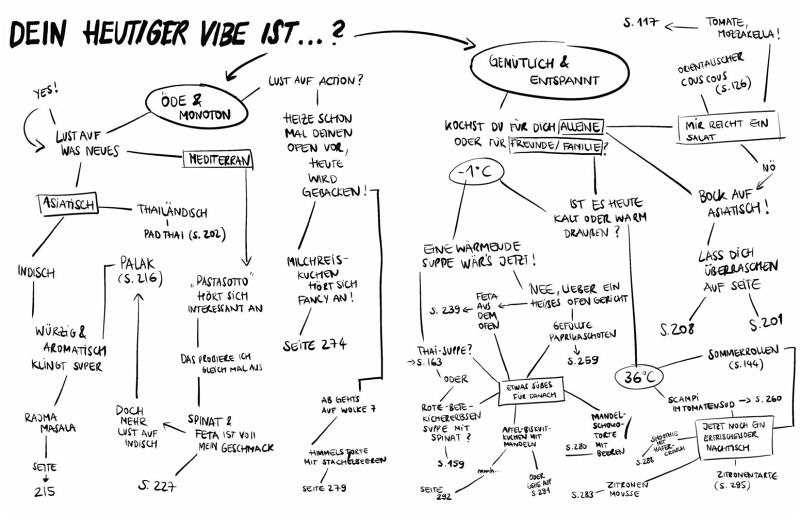 DEIN HEUTIGER VIBE IST...?
ÖDE &
MONOTON
YES!
LUST AUF
WAS NEUES
MEDITERRAN
ASIATISCH
THAILÄNDISCH
PAD THAI (S. 202)
INDISCH
PALAK
(S. 216)
WÜRZIG &
AROMATISCH
KLINGT SUPER
RAJMA
MASALA
SEITE
215
"PASTASOTTO"
HÖRT SICH
INTERESSANT AN
DAS PROBIERE ICH
GLEICH MAL AUS
SPINAT &
FETA IST VOLL
MEIN GESCHMACK
DOCH
MEHR
LUST AUF
INDISCH
S. 227
LUST AUF ACTION?
HEIZE SCHON
MAL DEINEN
OFEN VOR,
HEUTE
WIRD
GEBACKEN!
MILCHREIS-
KUCHEN
HÖRT SICH
FANCY AN!
SEITE 274
AB GEHTS
AUF WOLKE 7
HIMMELSTORTE
MIT STACHELBEEREN
SEITE 279
GEMÜTLICH &
ENTSPANNT
KOCHST DU FÜR DICH ALLEINE
ODER FÜR FREUNDE/FAMILIE?
-1°C
IST ES HEUTE
KALT ODER WARM
DRAUßEN?
EINE WÄRMENDE
SUPPE WÄR'S JETZT!
NEE, LIEBER EIN
HEIßES OFENGERICHT
FETA
AUS
DEM
OFEN
S. 239
GEFÜLLTE
PAPRIKASCHOTEN
S. 259
THAI-SUPPE?
S. 163
ODER
ROTE-BETE-
KICHERERBSEN
SUPPE MIT
SPINAT?
S. 159
ETWAS SÜßES
FÜR DANACH
APFEL-BISKUIT-
KUCHEN MIT
MANDELN
mmh...
SEITE
292
ODER
GEHE AUF
S. 291
MANDEL-
SCHOKO-
TORTE
MIT
BEEREN
S. 280
36°C
SOMMERROLLEN
(S. 144)
SCAMPI
IM TOMATENSUD
S. 260
JETZT NOCH EIN
ERFRISCHENDER
NACHTISCH
SMOOTHIE
MIT
HAFER-
CRUNCH
ZITRONEN
MOUSSE
S. 283
ZITRONENTARTE
(S. 295)
S. 117
TOMATE,
MOZZARELLA!
ORIENTALISCHER
COUSCOUS
(S. 126)
MIR REICHT EIN
SALAT
NÖ
BOCK AUF
ASIATISCH!
LASS DICH
ÜBERRASCHEN
AUF SEITE
S. 208
S. 201